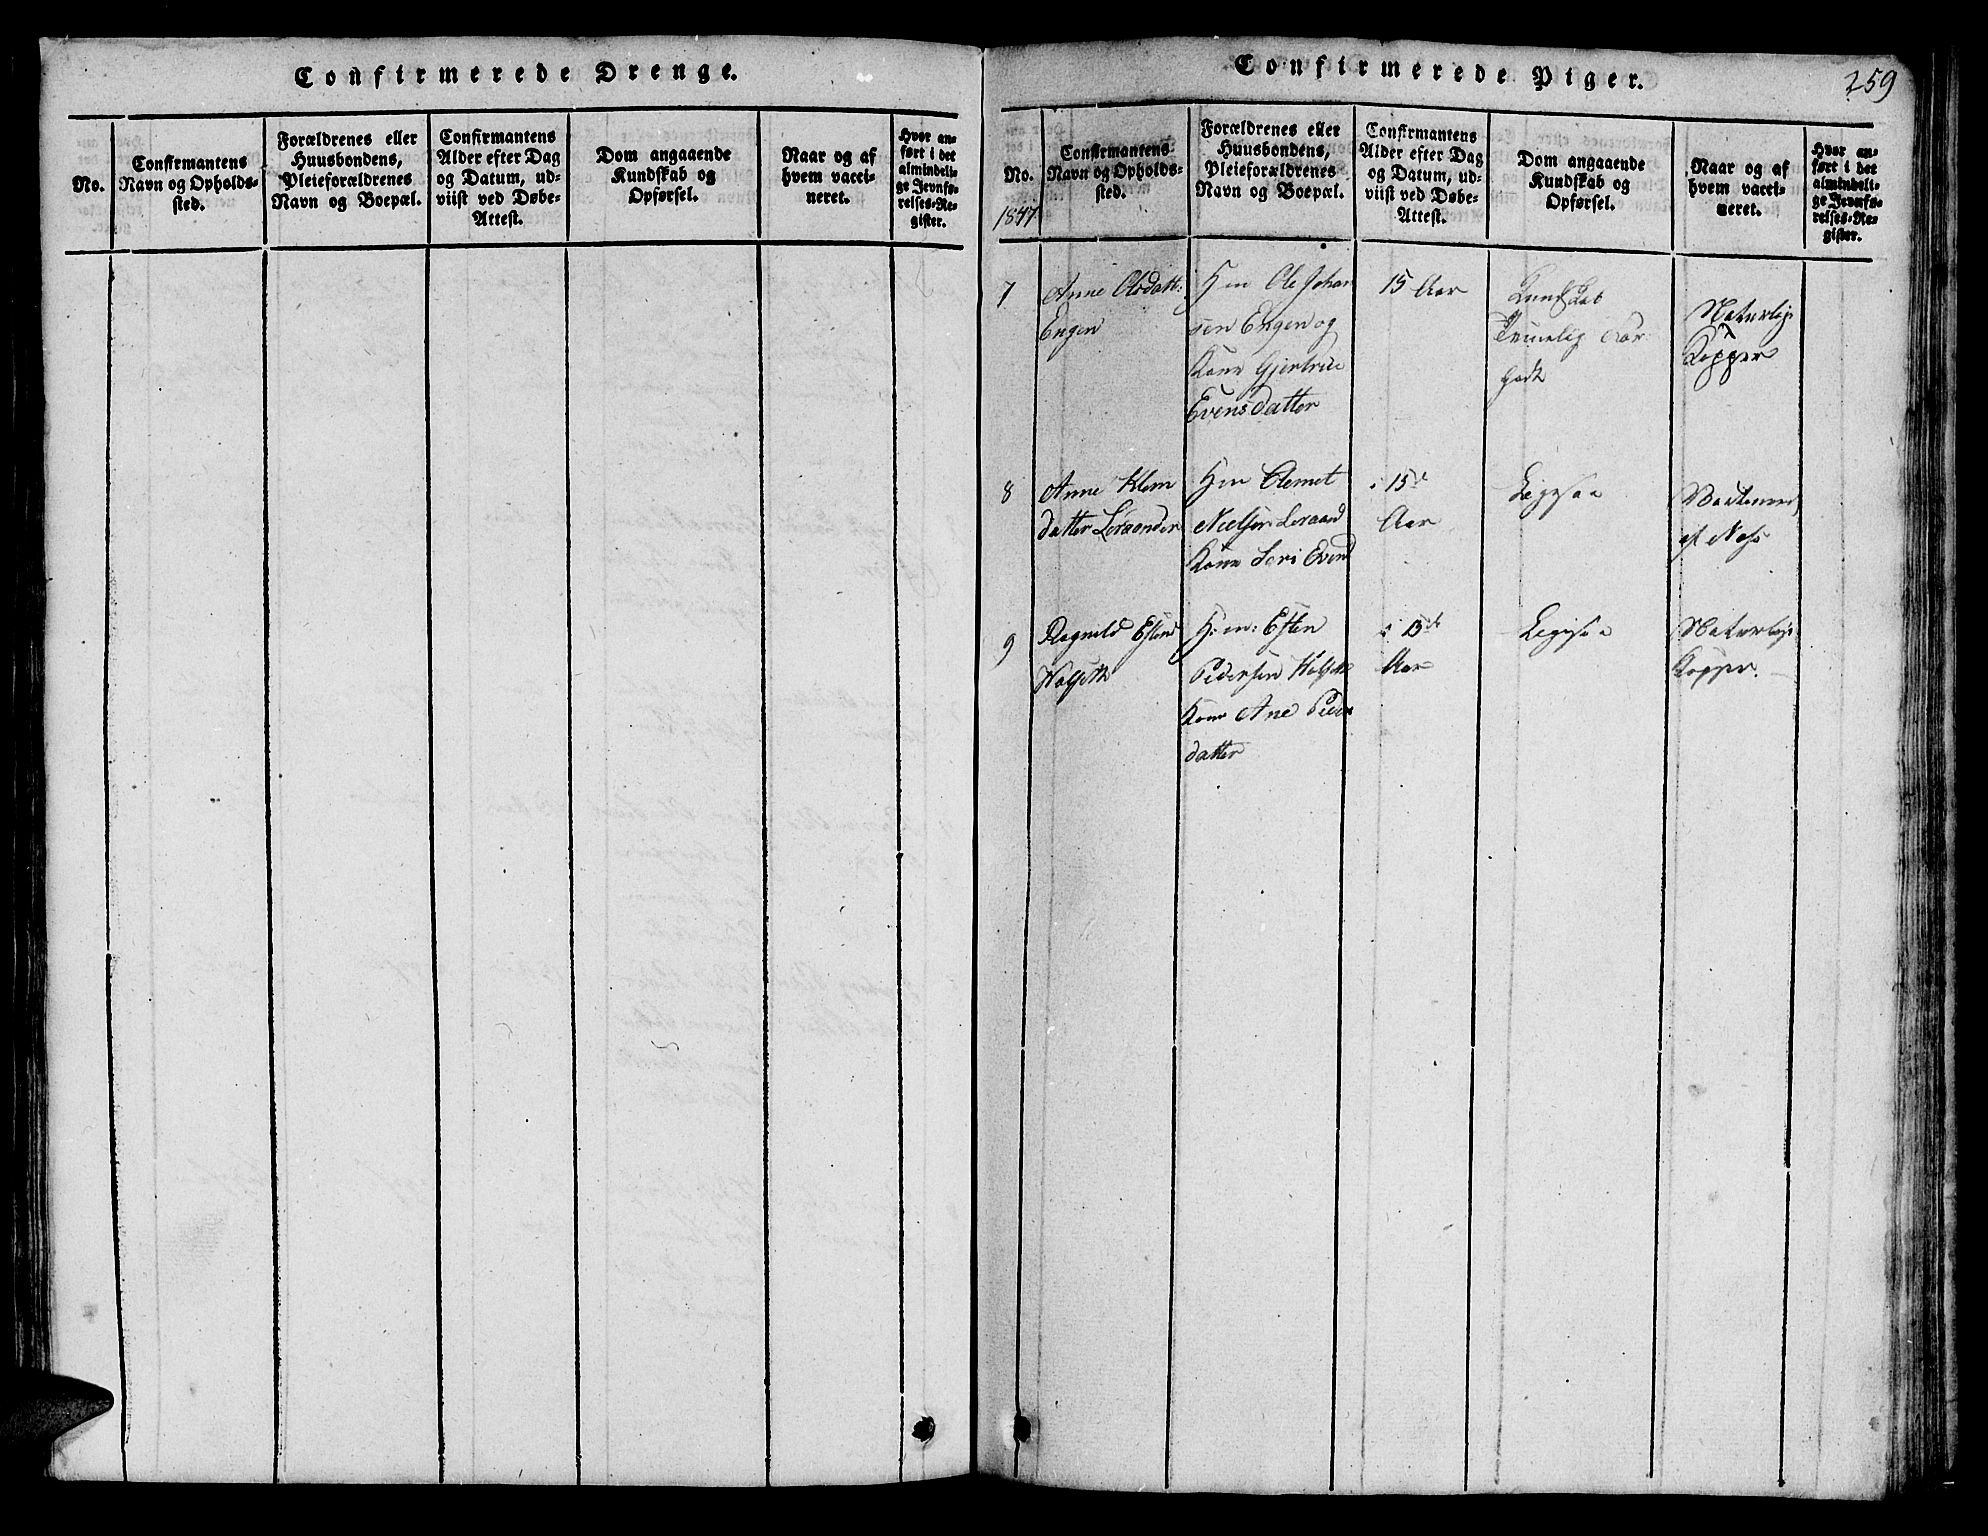 Confirmerede Drenge.
No.
Confirmantens
Navn og Opholds-
sted.
Forældrenes eller
Huusbondens,
Pleieforældrenes
Navn og Boepæl.
Confirmantens
Alder efter Dag
og Datum, ud-
viist ved Døbe-
Attest.
Dom angaaende
Kundskab og
Opførsel.
Naar og af
hvem vacci-
neret.
Hvor an-
ført i det
almindeli-
ge Jevnfø-
relses-Re-
gister.
Confirmerede Piger.
259
No.
1847
Confirmantens
Navn og Opholds-
sted.
Forældrenes eller
Huusbondens,
Pleieforældrenes
Navn og Boepæl.
Confirmantens
Alder efter Dag
og Datum, ud-
viist ved Døbe-
Attest.
Dom angaaende
Kundskab og
Opførsel.
Naar og af
hvem vacci-
neret.
Hvor an-
ført i det
almindeli-
ge Jevnfø-
relses-Re-
gister.
7
Anne Olsdatt:
Engen
Ole Johan
sen Engen og
Kone Gjertrue
Evensdatter
15 Aar
Kundskab
Temelig
godt
Naturlig
Kopper
8
Anne Klem
datter
Clemet
Nielsen
Kone Even
i 15de
Aar
Ligesaa
af
9
Ragnild
Esten
Pedersen
Kone Ane Peder
datter
i 15de
Aar
Ligesaa
Naturlige
Kopper.